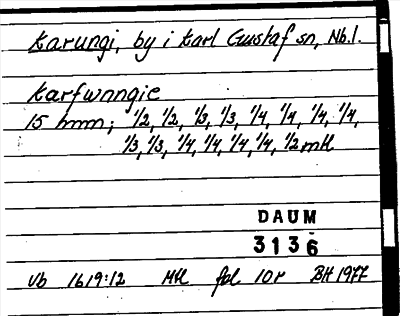 Karungi, by i Karl Gustaf sn, Nb.l.
Karfwnngie
15 hmn; 1/2, 1/2, 1/3, 1/3, 1/4, 1/4, 1/4, 1/4,
1/3, 1/3, 1/4, 1/4, 1/4, 1/4, 1/2 mtl
DAUM
3136
Vb 1619:12 Mtl fol 10r BH 1977